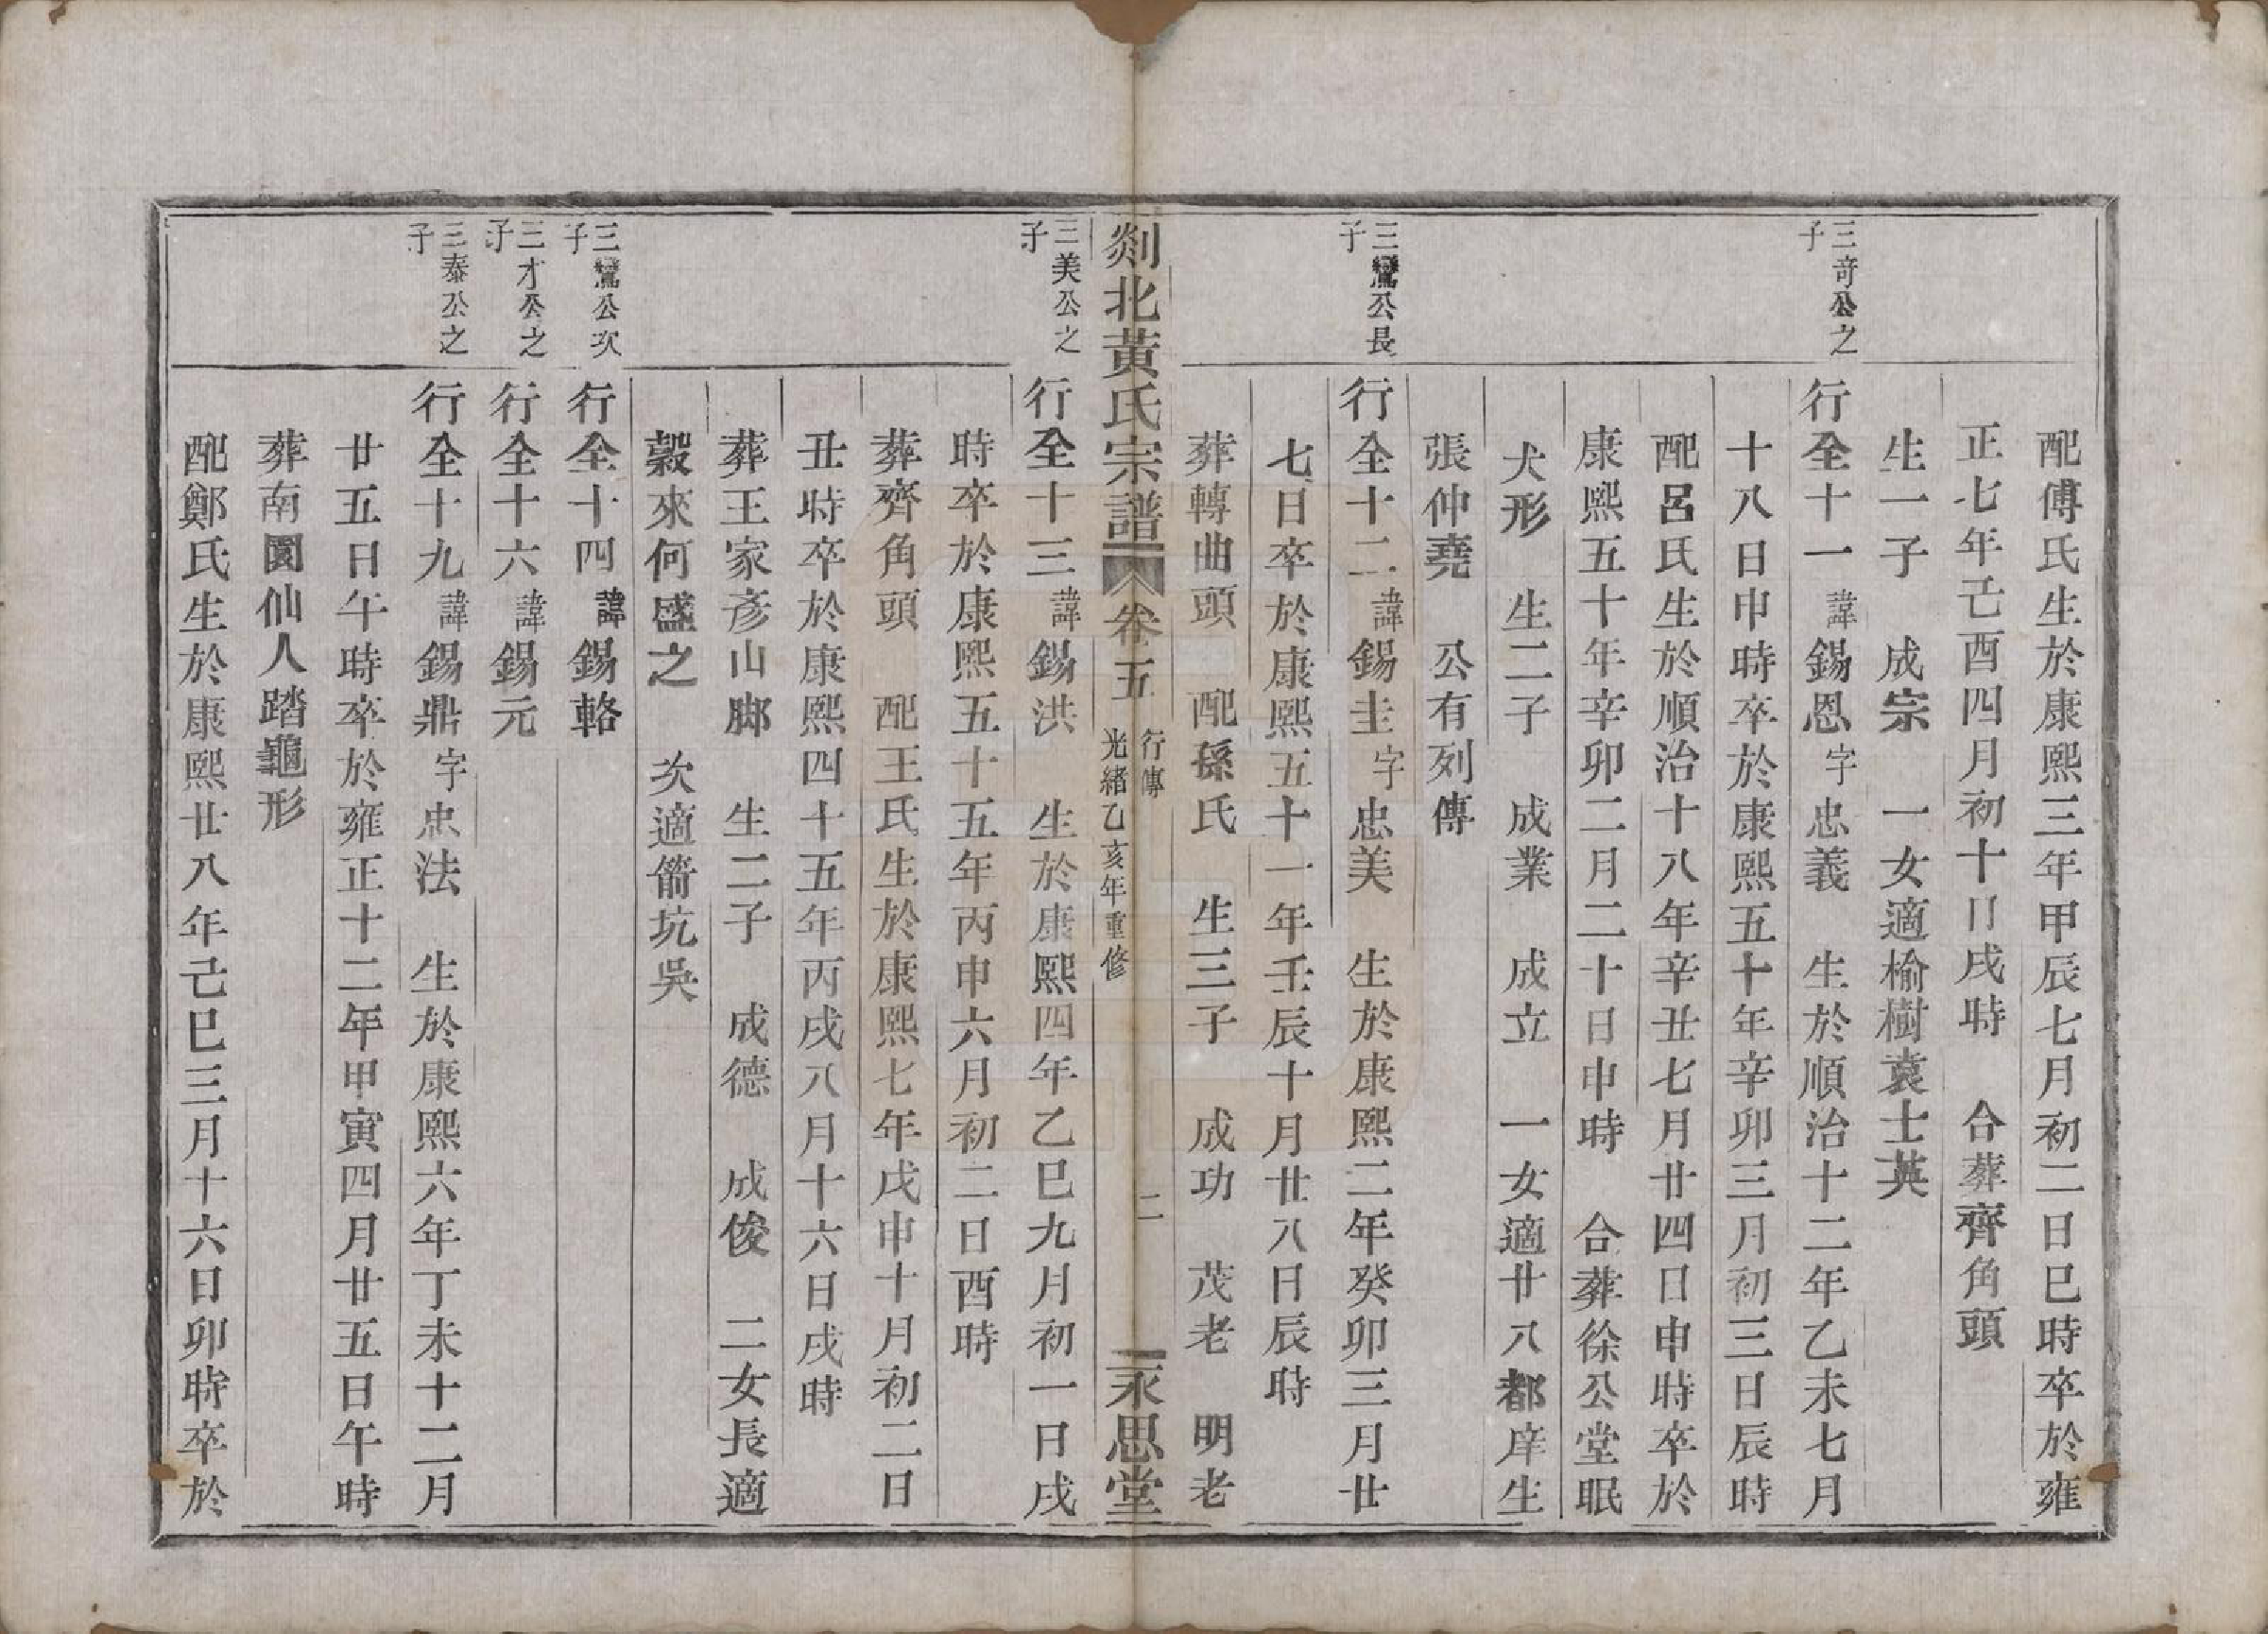 配傅氏生於康熙三年甲辰七月初二日巳時卒於雍
正七年己酉四月初十日戌時　合葬齊角頭
生一子　成宗　一女適榆樹袁士英
三奇公之子
行全十一諱錫恩字忠義　生於順治十二年乙未七月
十八日申時卒於康熙五十年辛卯三月初三日辰時
配呂氏生於順治十八年辛丑七月廿四日申時卒於
康熙五十年辛卯二月二十日申時　合葬徐公堂眠
犬形　生二子　成業　成立　一女適廿八都庠生
張仲堯　公有列傳
三鶯公長子
行全十二諱錫圭字忠美　生於康熙二年癸卯三月廿
七日卒於康熙五十一年壬辰十月廿八日辰時
葬轉曲頭　配孫氏　生三子　成功　茂老　明老
剡北黃氏宗譜　卷五　行傳　光緒乙亥年重修　二　永思堂
三美公之子
行全十三諱錫洪　生於康熙四年乙巳九月初一日戌
時卒於康熙五十五年丙申六月初二日酉時
葬齊角頭　配王氏生於康熙七年戊申十月初二日
丑時卒於康熙四十五年丙戌八月十六日戌時
葬王家彥山腳　生二子　成德　成俊　二女長適
穀來何盛之　次適箭坑吳
三鶯公次子
行全十四諱錫輅
三才公之子
行全十六諱錫元
三泰公之子
行全十九諱錫鼎字忠法　生於康熙六年丁未十二月
廿五日午時卒於雍正十二年甲寅四月廿五日午時
葬南園仙人踏龜形
配鄭氏生於康熙廿八年己巳三月十六日卯時卒於